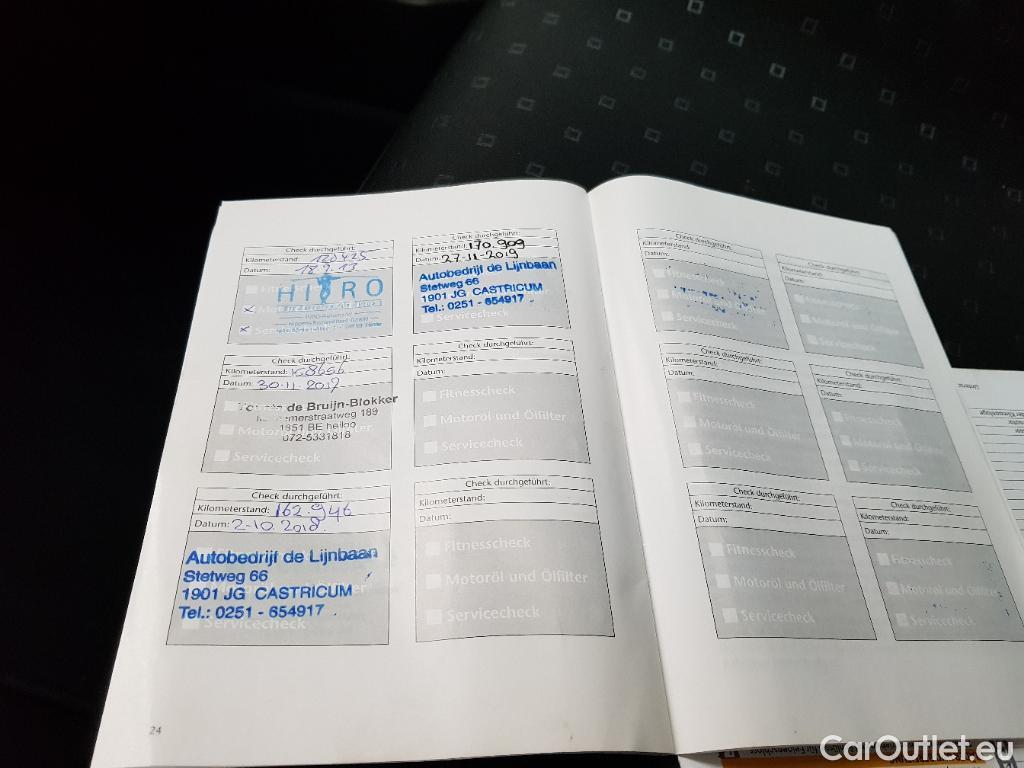 Check durchgeführt:
Kilometerstand: 120425
Datum: 18.2.13
HITRO
Servicecheck
Check durchgeführt:
Kilometerstand:
Datum: 30-11-2017
Toyota de Bruijn-Blokker
straatweg 189
1851 BE heiloo
072-5331818
Servicecheck
Check durchgeführt:
Kilometerstand: 162.946
Datum: 2-10-2018
Autobedrijf de Lijnbaan
Stetweg 66
1901 JG CASTRICUM
Tel.: 0251 - 654917
Servicecheck
24
Check durchgeführt:
Kilometerstand: 170.909
Datum: 27-11-2019
Autobedrijf de Lijnbaan
Stetweg 66
1901 JG CASTRICUM
Tel.: 0251 - 654917
Servicecheck
Check durchgeführt:
Kilometerstand:
Datum:
Fitnesscheck
Motoröl und Ölfilter
Servicecheck
Check durchgeführt:
Kilometerstand:
Datum:
Fitnesscheck
Motoröl und Ölfilter
Servicecheck
Check durchgeführt:
Kilometerstand:
Datum:
Fitnesscheck
Servicecheck
Check durchgeführt:
Kilometerstand:
Datum:
Fitnesscheck
Motoröl und Ölfilter
Servicecheck
Check durchgeführt:
Kilometerstand:
Datum:
Fitnesscheck
Motoröl und Ölfilter
Servicecheck
Check durchgeführt:
Kilometerstand:
Datum:
Fitnesscheck
Motoröl und Ölfilter
Servicecheck
Check durchgeführt:
Kilometerstand:
Datum:
Fitnesscheck
Motoröl und Ölfilter
Servicecheck
Check durchgeführt:
Kilometerstand:
Datum:
Fitnesscheck
Motoröl und Ölfilter
Servicecheck
CarOutlet.eu